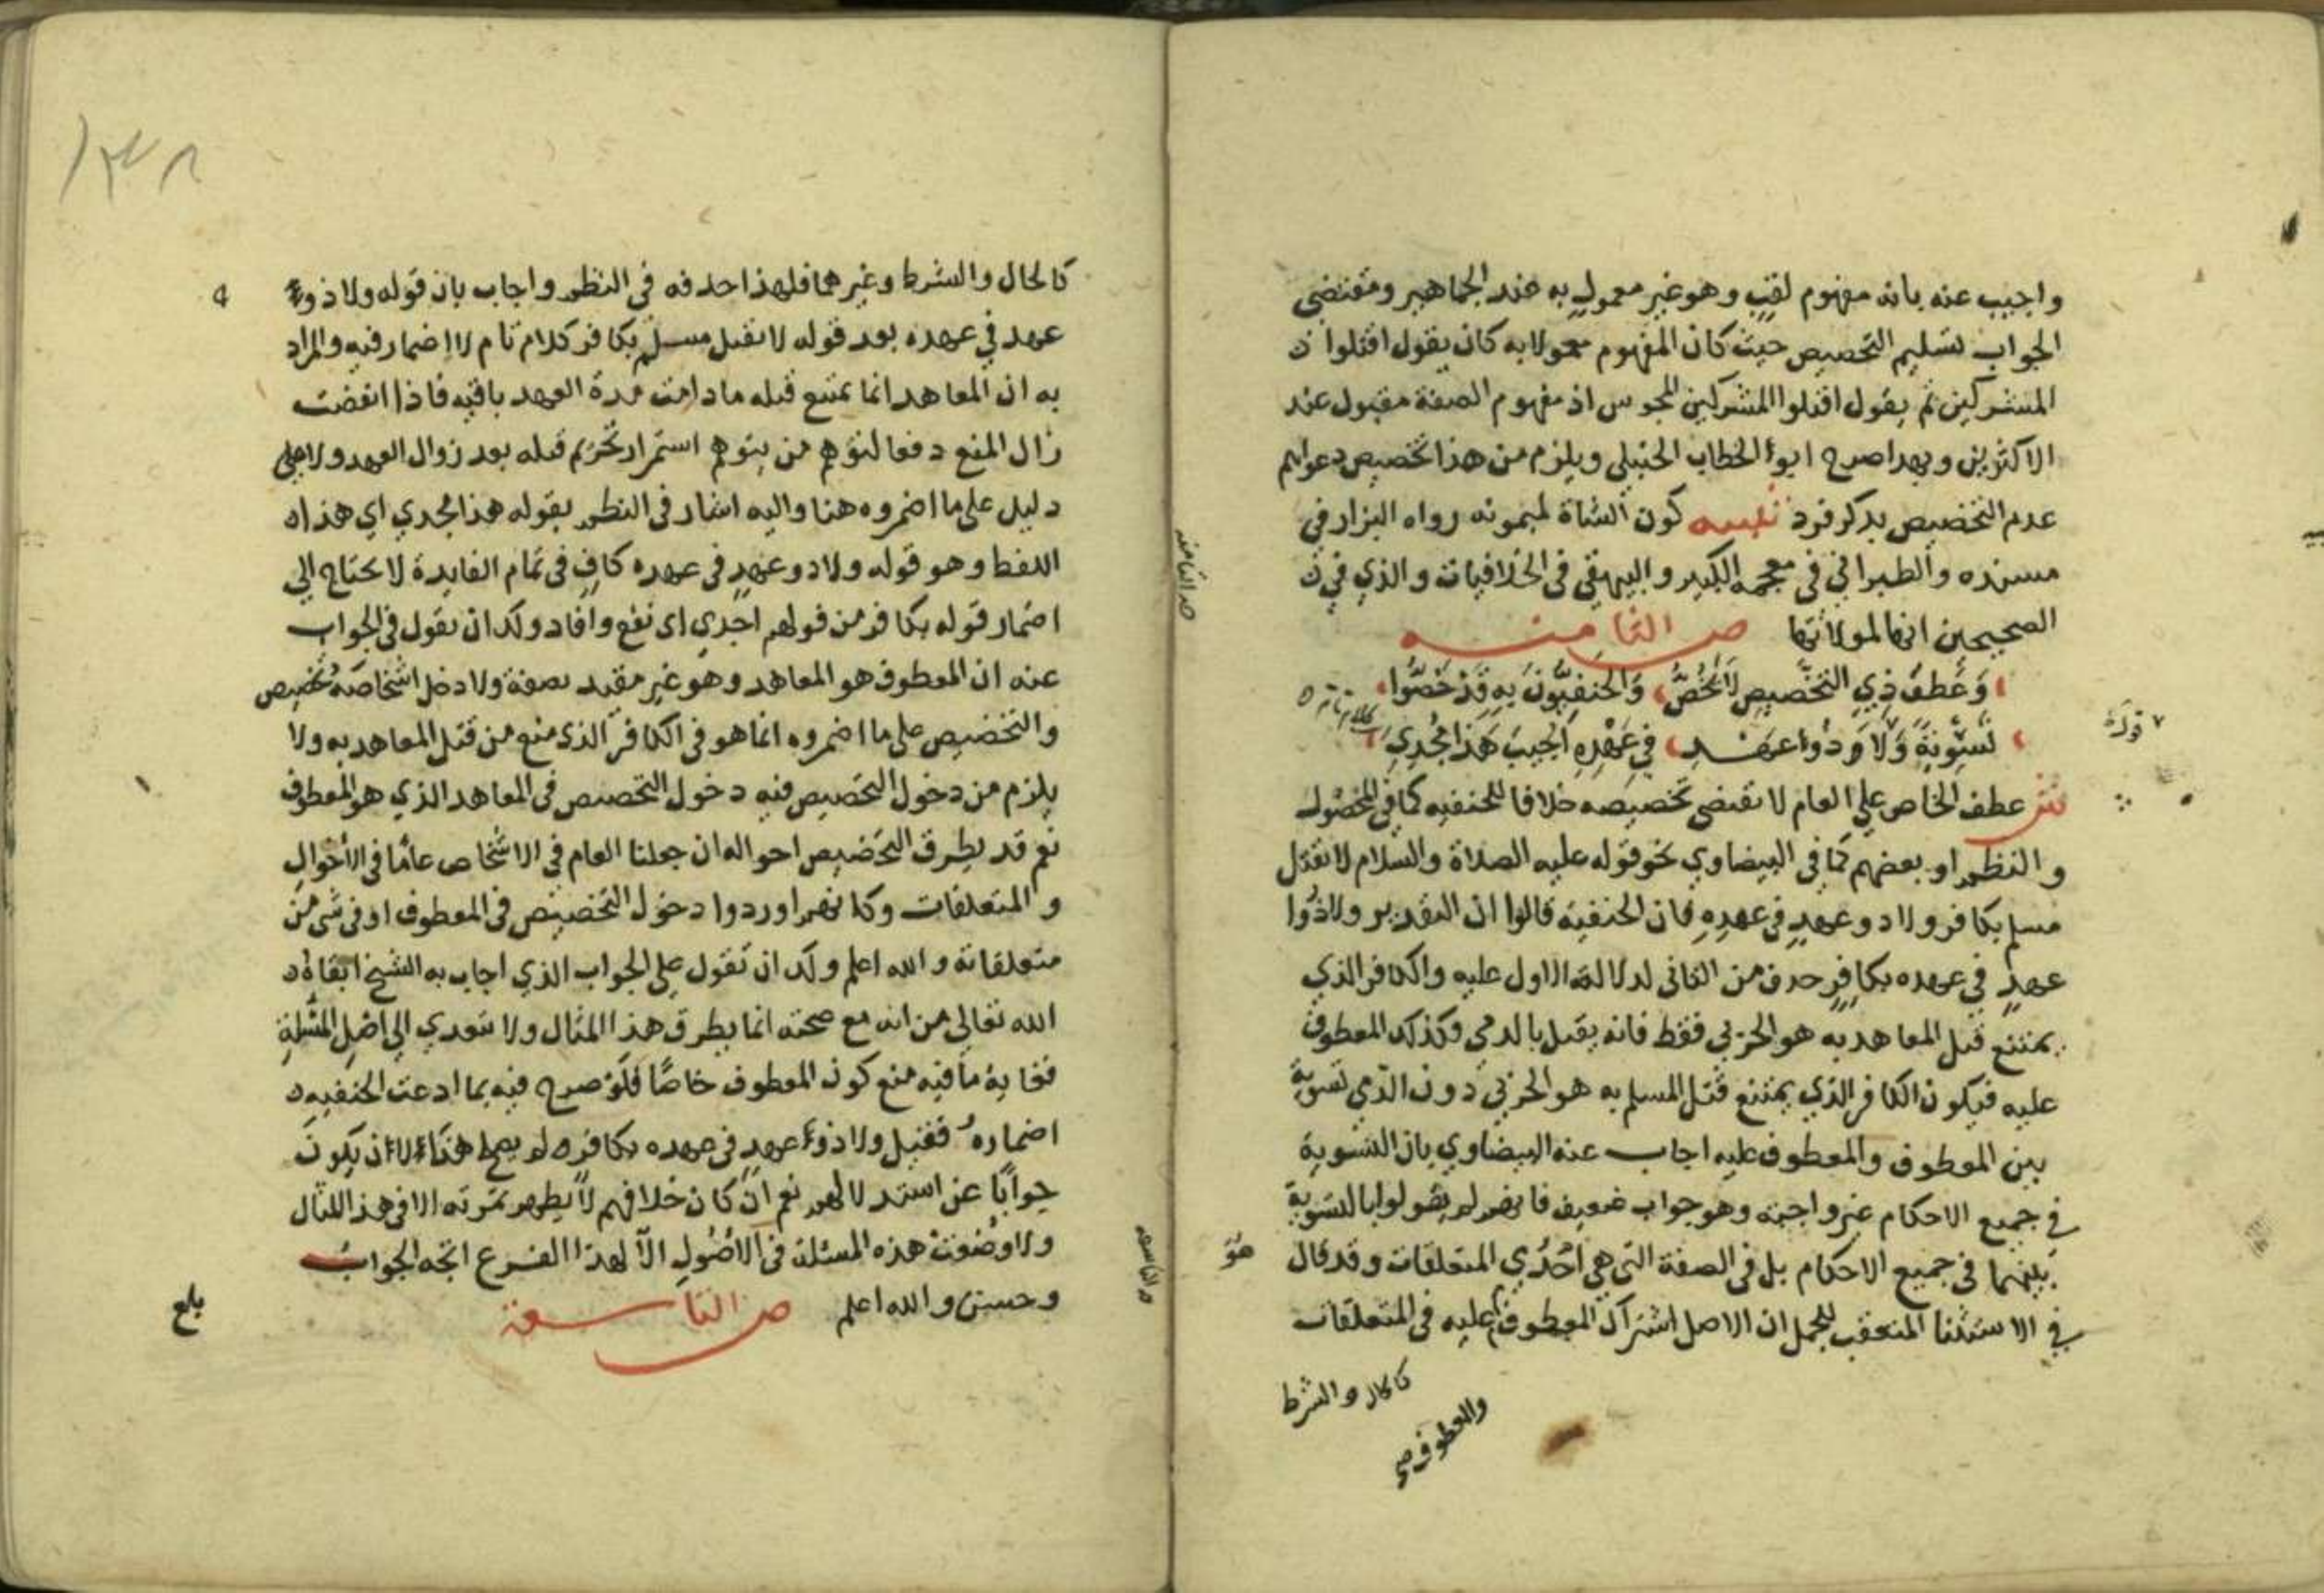 واجيب عنه بانه مفهوم لقب وهو غير معمول به عند الجماهير ومقتضى
الجواب تسليم التخصيص حيث كان المفهوم معمولا به كان يقول اقتلوا
المشركين ثم يقول اقتلوا المشركين المجوس اذ مفهوم الصفة مقبول عند
الاكثرين وبهذا صرح ابو الخطاب الحنبلي ويلزم من هذا تخصيص دعواهم
عدم التخصيص بذكر فرد تنبيه كون الشاة لميمونه رواه البزار في
مسنده والطبراني في معجمه الكبير والبيهقي في الخلافيات والذي في
الصحيحين انها لمولاتها ص الثامنه
وَعَطفُ ذِي التخصيصِ لَا يُخُصُّ وَالحَنَفِيُّونَ بِهِ قَدْ خَصُّوا
تَسْوِيَةً وَلَا وَذُوا عَهْدٍ في عَهْدِهِ اُجِيبَ هَذَا مُجْدِي
قوله
ش عطف الخاص على العام لا يقتضى تخصيصه خلافا للحنفيه كما في المحصول
والنظم او بعضهم كما في البيضاوي نحو قوله عليه الصلاة والسلام لا يقتل
مسلم بكافر ولا ذو عهد في عهده فان الحنفية قالوا ان التقدير ولا ذوا
عهد في عهده بكافر حذف من الثاني لدلالة الاول عليه والكافر الذي
يمتنع قتل المعاهد به هو الحربي فقط فانه يقتل بالذمي وكذلك المعطوف
عليه فيكون الكافر الذي يمتنع قتل المسلم به هو الحربي دون الذمي تسوية
بين المعطوف والمعطوف عليه اجاب عنه البيضاوي بان التسوية
في جميع الاحكام غير واجبة وهو جواب ضعيف فانهم لم يقولوا بالتسوية
بينهما في جميع الاحكام بل في الصفة التي هي احدي المتعلقات وقد قال هو
في الاستثنا المتعقب للجمل ان الاصل اشتراك المعطوف عليه في المتعلقات
والمعطوف صح
كالحال والشرط
ص الثامنه
كالحال والشرط وغيرهما فلهذا حذفه في النظم واجاب بان قوله ولا ذو
عهد في عهده بعد قوله لا يقتل مسلم بكافر كلام تام لا اضمار فيه والمراد
به ان المعاهد انما يمتنع قتله ما دامت مدة العهد باقيه فاذا انقضت
زال المنع دفعا لتوهم من يتوهم استمرار تحريم قتله بعد زوال العهد ولا
دليل على ما اضمروه هنا واليه اشار في النظم بقوله هذا مجدي اي هذا
اللفظ وهو قوله ولا ذو عهد في عهده كاف في تمام الفايدة لا يحتاج الي
اضمار قوله بكافر من قولهم اجدي اي نفع وافاد ولك ان تقول في الجواب
عنه ان المعطوف هو المعاهد وهو غير مقيد بصفة ولا دخل اشخاصه تخصيص
والتخصيص على ما اضمروه انما هو في الكافر الذي منع من قتل المعاهد به ولا
يلزم من دخول التخصيص فيه دخول التخصيص في المعاهد الذي هو المعطوف
نعم قد يطرق التخصيص احواله ان جعلنا العام في الاشخاص عاما في الاحوال
والمتعلقات وكانهم اوردوا دخول التخصيص في المعطوف او في شي من
متعلقاته والله اعلم ولك ان تقول على الجواب الذي اجاب به الشيخ ابقاه
الله تعالى من انه مع صحته انما يطرق هذا المثال ولا يتعدي الي اصل المسئلة
فغاية ما فيه منع كون المعطوف خاصا فلو صرح فيه بما ادعت الحنفيه
اضماره فقيل ولا ذو عهد في عهده بكافر لم يصح هذا لان يكون
جوابا عن استدلالهم نعم ان كان خلافهم لا يظهر ثمرته الا في هذا المثال
ولا وضعت هذه المسئلة في الاصول الا لهذا الفرع اتجه الجواب
وحسن والله اعلم ص التاسعة
بلغ